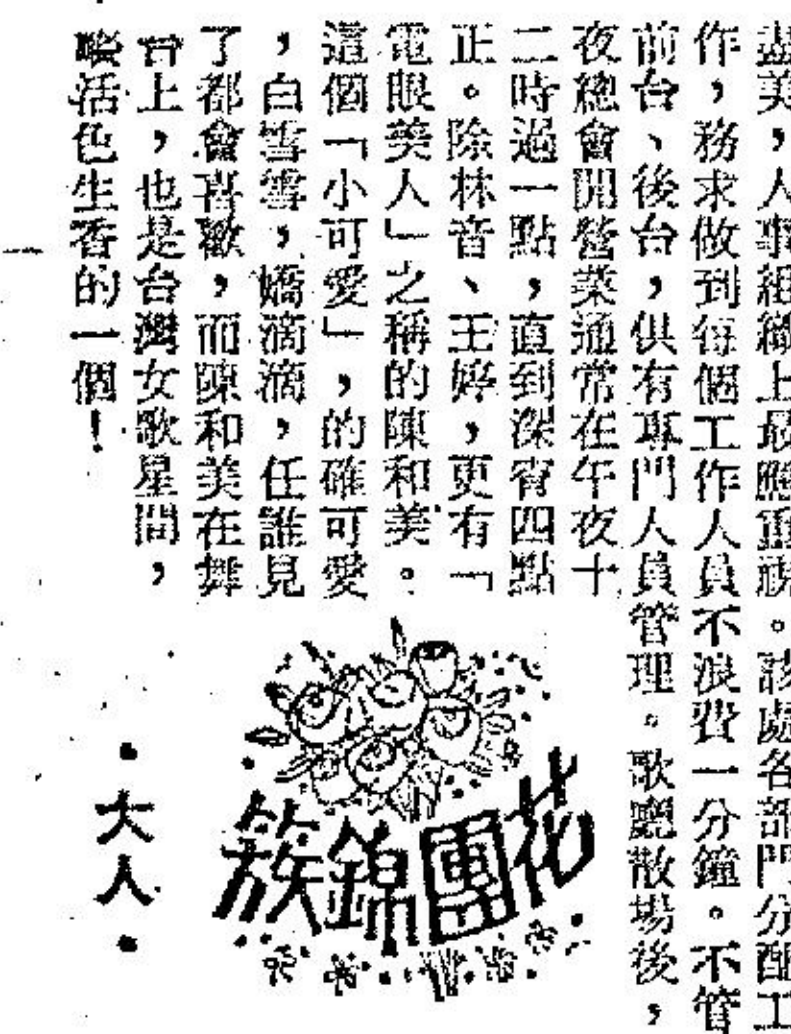 盡美，人事組織上最應重視。該處各部門分配工
作，務求做到每個工作人員不浪費一分鐘。不管
前台、後台，供有專門人員管理。歌廳散場後，
夜總會開營業通常在午夜十
二時過一點，直到深宵四點
正。除林音、王婷，更有「
電眼美人」之稱的陳和美。
這個「小可愛」，的確可愛
，白雪雪，嬌滴滴，任誰見
了都會喜歡，而陳和美在舞
台上，也是台灣女歌星間，
活色生香的一個！
花團錦簇
•大人•